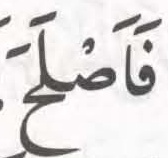 فَاَصْلَحَ